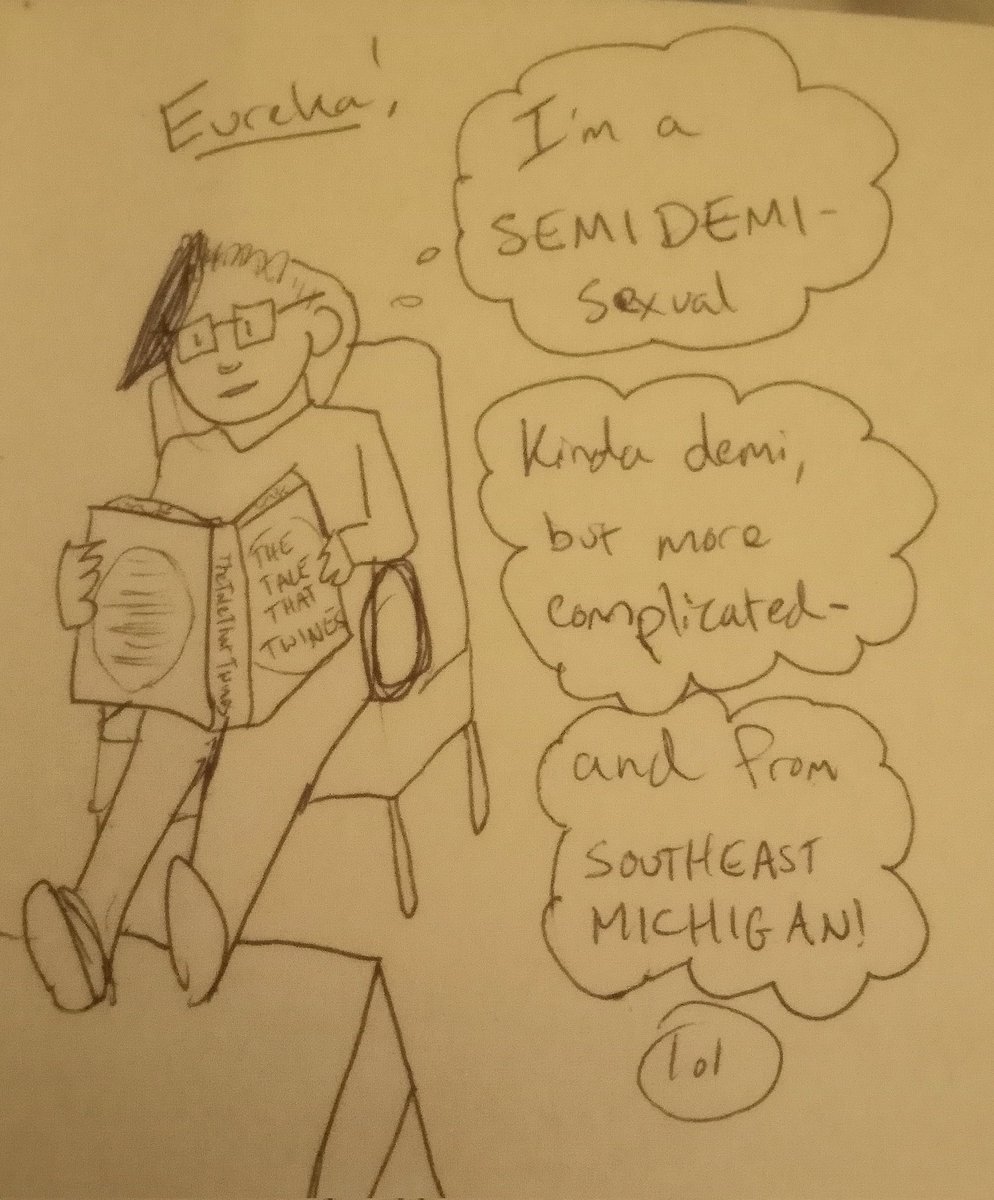 Eureka!
I'm a
SEMIDEMI-
Sexual
Kinda demi,
but more
complicated-
and from
SOUTHEAST
MICHIGAN!
lol
THE
TALE
THAT
TWINES
The Tale That Twines